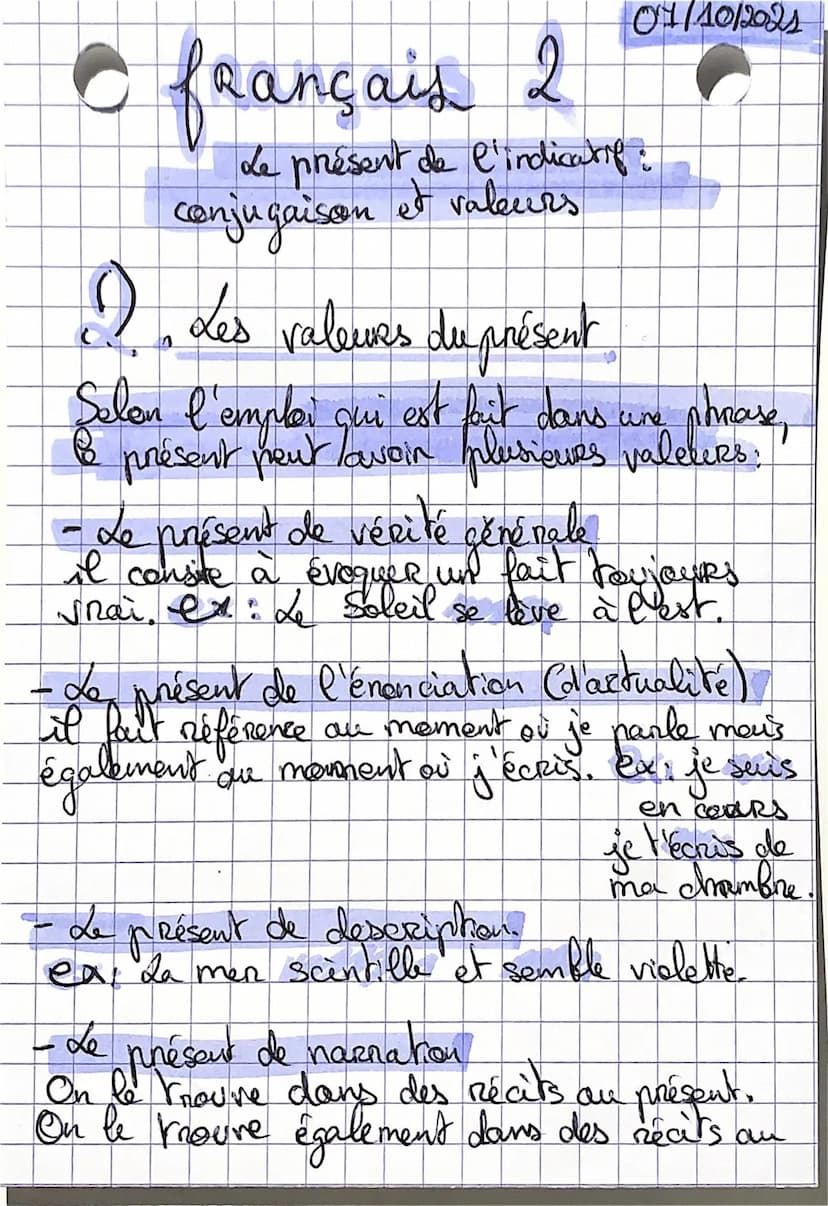 07/10/2021
français 2
Le présent de l'indicatif :
conjugaison et valeurs
2. Les valeurs du présent
Selon l'emploi qui est fait dans une phrase,
le présent peut avoir plusieurs valeurs :
- Le présent de vérité générale
il consite à évoquer un fait toujours
vrai. ex : Le Soleil se lève à l'est.
- Le présent de l'énonciation (d'actualité)
il fait référence au moment où je parle mais
également au moment où j'écris. Ex : je suis
en cours
je t'écris de
ma chambre.
- Le présent de description.
ex : La mer scintille et semble violette.
- Le présent de narration
On le trouve dans des récits au présent.
On le trouve également dans des récits au